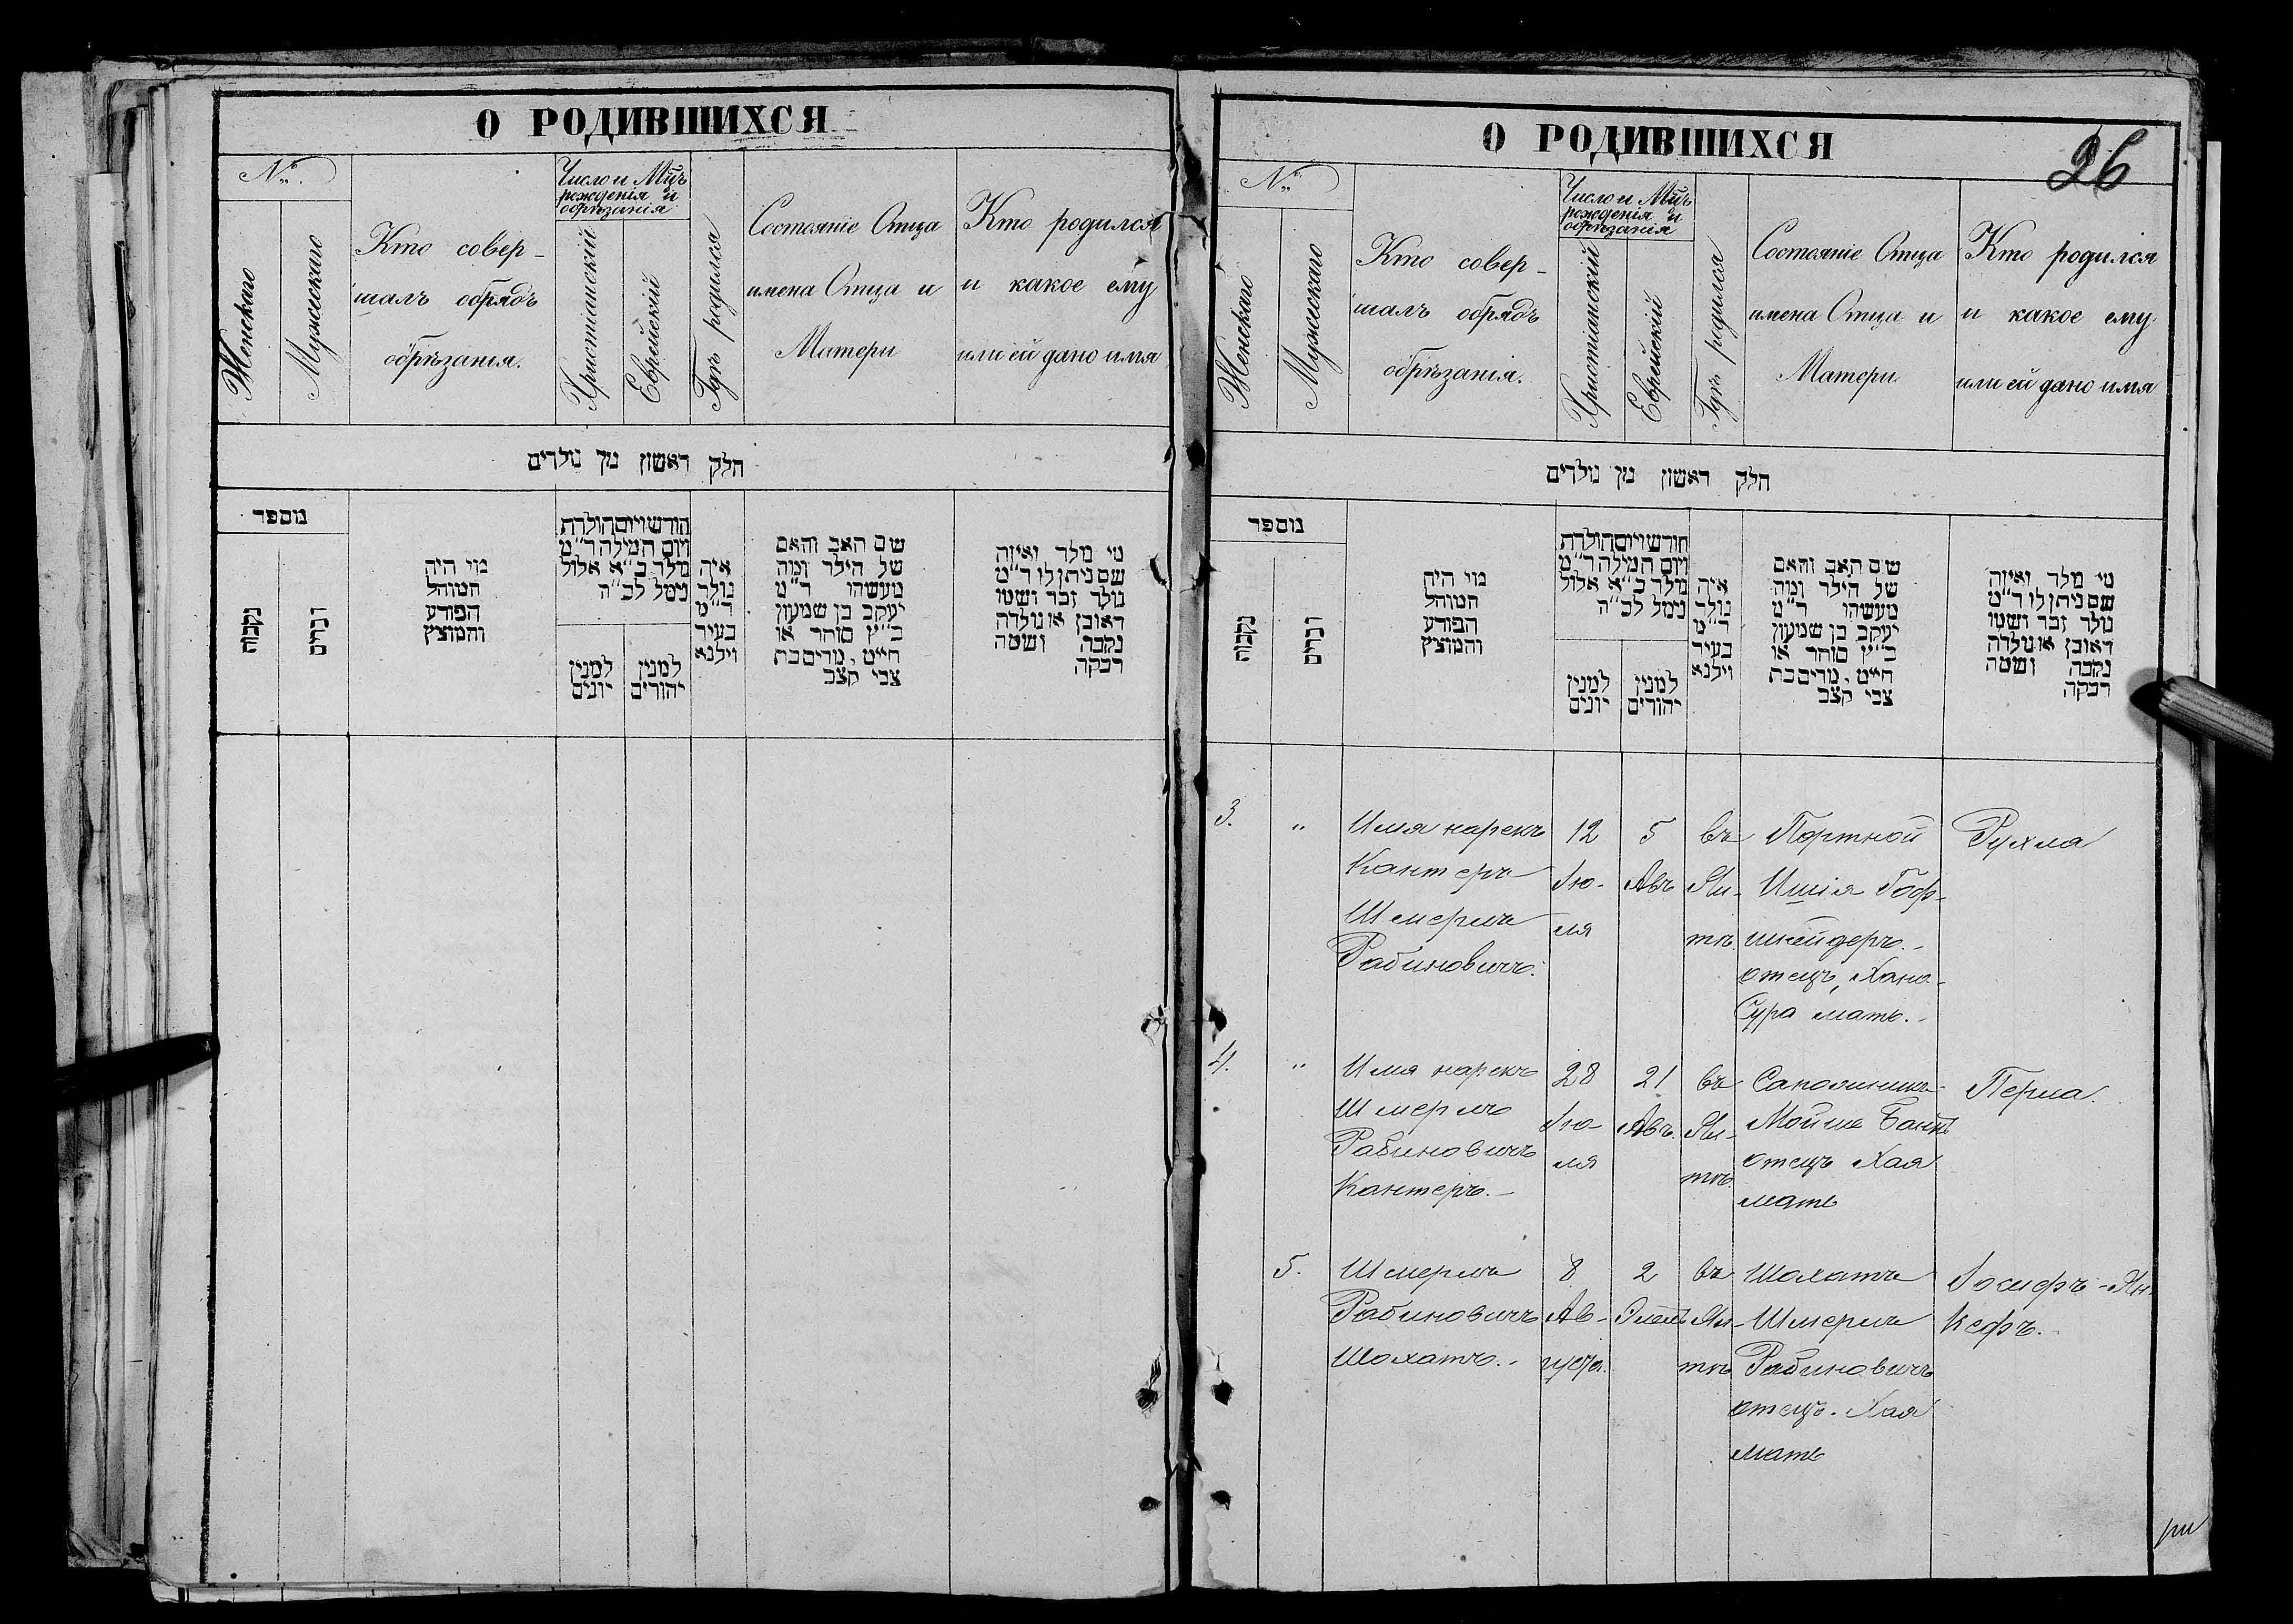 О РОДИВШИХСЯ
№
Женскаго
Мужескаго
Кто совер-
шалъ обрядъ
обрѣзанія.
Число и Мцъ
рожденія и
обрѣзанія
Христіанскій
Еврейскій
Гдѣ родился
Состояніе Отца
имена Отца и
Матери
Кто родился
и какое ему
или ей дано имя
חלק ראשון מן נולדים
נומפר
נקבות
זכרים
מי היה
המוהל
הפורע
והמוצץ
חודש ויום הולדת
ויום המילה ד״מ
נולד כ״א אלול
נימל לכ״ה
למנין
יונים
למנין
יהודים
איה
נולד
ד״מ
בעיר
וילנא
שם האב והאם
של הילד ומה
מעשהו ד״מ
יעקב בן שמעון
כ״ץ סוחר או
חייט, מרים בת
צבי קצב
מי נולד ואיזה
שם ניתן לו ד״מ
נולד זכר ושמו
ראובן או נולדה
נקבה ושמה
רבקה
О РОДИВШИХСЯ
26
№
Женскаго
Мужескаго
Кто совер-
шалъ обрядъ
обрѣзанія.
Число и Мцъ
рожденія и
обрѣзанія
Христіанскій
Еврейскій
Гдѣ родился
Состояніе Отца
имена Отца и
Матери
Кто родился
и какое ему
или ей дано имя
חלק ראשון מן נולדים
נומפר
נקבות
זכרים
מי היה
המוהל
הפורע
והמוצץ
חודש ויום הולדת
ויום המילה ד״מ
נולד כ״א אלול
נימל לכ״ה
למנין
יונים
למנין
יהודים
איה
נולד
ד״מ
בעיר
וילנא
שם האב והאם
של הילד ומה
מעשהו ד״מ
יעקב בן שמעון
כ״ץ סוחר או
חייט, מרים בת
צבי קצב
מי נולד ואיזה
שם ניתן לו ד״מ
נולד זכר ושמו
ראובן או נולדה
נקבה ושמה
רבקה
3. " Имя нарекъ 12 5 въ Портной Рухла
Канторъ Ію- Авъ Ли- Ишія Гоф-
Шмерлъ ля тѣ. шнейдеръ.-
Рабиновичъ. отецъ, Хана-
Сура мать.-
4. " Имя нарекъ 28 21 въ Сапожникъ Перла.
Шмерлъ Ію- Авъ. Ли- Мойше
Рабиновичъ ля тѣ. отецъ Хая
Канторъ.- мать
5. Шмерлъ 8 2 въ Шохатъ Іосифъ-Ян-
Рабиновичъ Ав- Элелъ Ли- Шмерлъ кефъ.
Шохатъ.- густа. тѣ Рабиновичъ
отецъ. Хая
мать